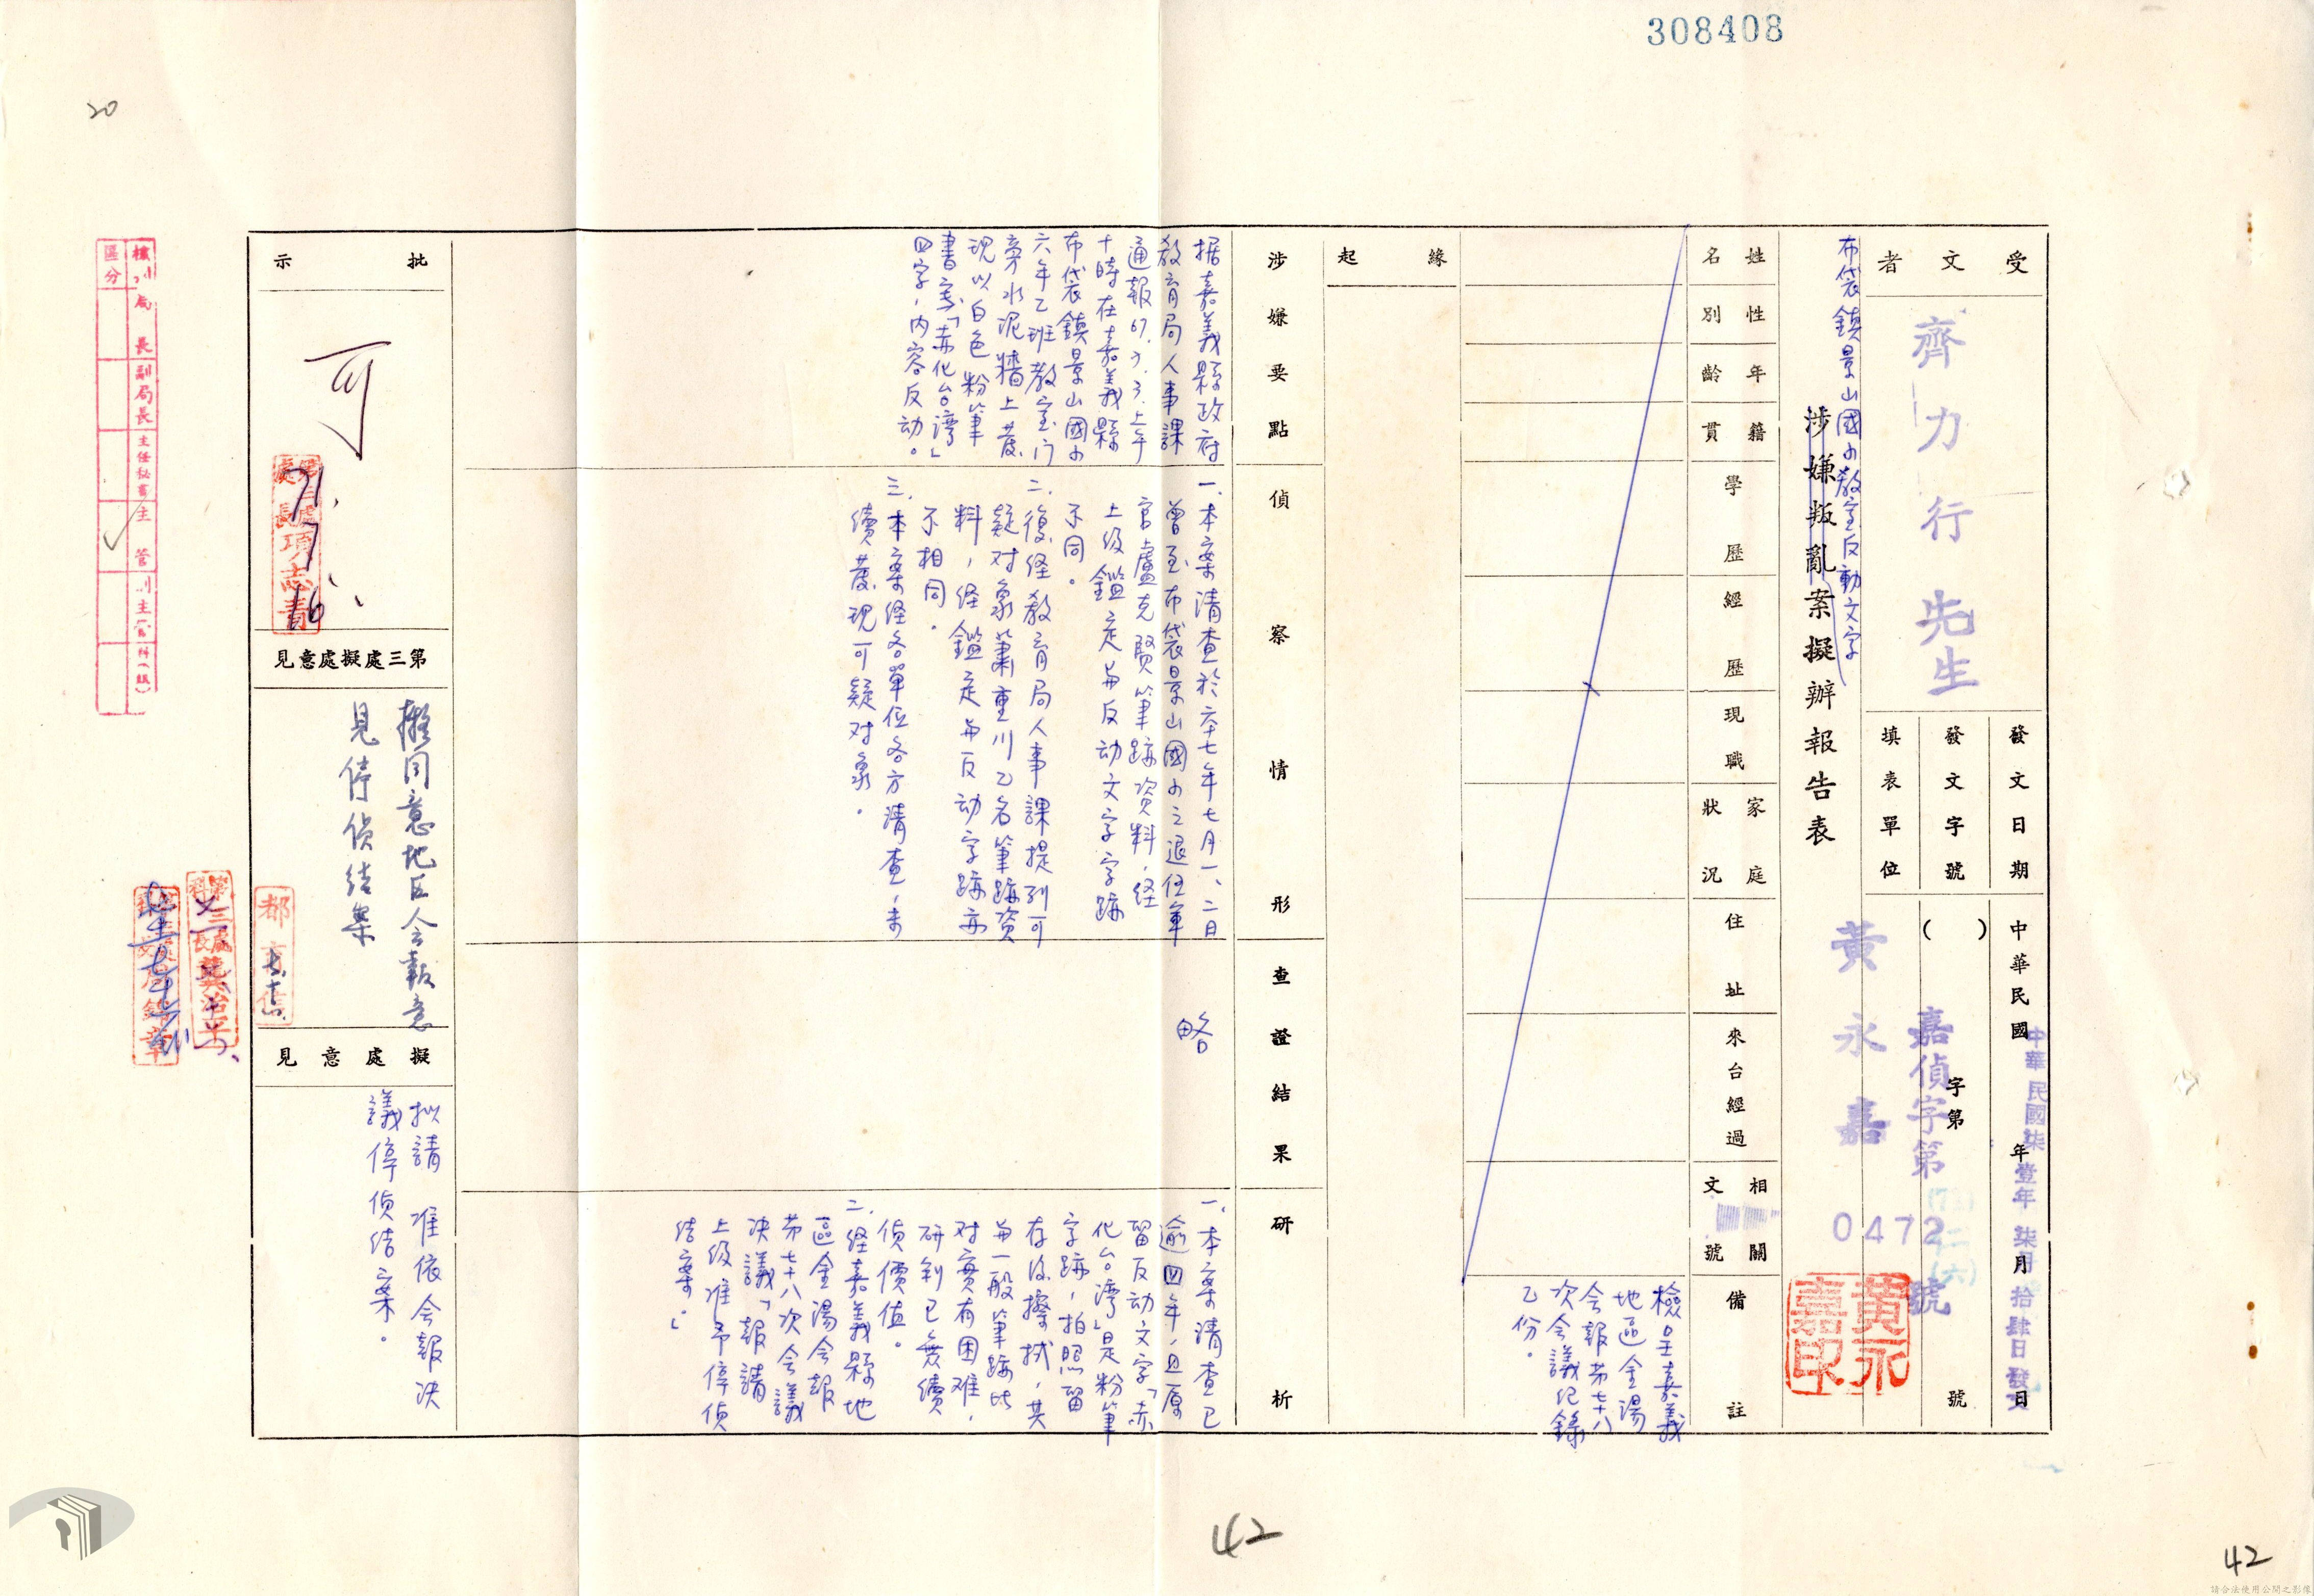 308408
20
受文者
齊力行先生
發文日期
中華民國 年 月 日
中華民國柒壹年柒月拾肆日發文
發文字號
( )字第 號
嘉偵字第 0472 號
填表單位
黃永嘉
黃永嘉印
布袋鎮景山國小教室反動文字
涉嫌叛亂案擬辦報告表
姓名
性別
年齡
籍貫
學歷
經歷
現職
家庭狀況
住址
來台經過
相關文號
備註
檢呈嘉義
地區金湯
会報苐七十八
次会議紀錄
乙份。
緣起
涉嫌要點
据嘉義縣政府
教育局人事課
通報67.7.3.上午
十時在嘉義縣
布袋鎮景山國小
六年乙班教室门
旁水泥牆上發
現以白色粉筆
書寫「赤化台湾」
四字,内容反动。
偵察情形
一.本案清查於六十七年七月一、二日
曾至布袋景山國小之退伍軍
官盧克賢筆跡資料,经
上级鑑定与反动文字字跡
不同。
二.復经教育局人事課提列可
疑对象蕭重川乙名筆跡資
料,经鑑定与反动字跡亦
不相同。
三.本案经各單位各方清查,未
續發現可疑对象。
查證結果
略
研析
一.本案清查已
逾四年,且原
留反动文字「赤
化台湾」是粉筆
字跡,拍照留
存後擦拭,其
与一般筆跡比
对實有困难,
研判已無續
偵價值。
二.经嘉義縣地
區金湯会報
苐七十八次会議
决議「報請
上级准予停偵
结案。」
批示
可
71.7.16.
第三處處長項志青
第三處擬處意見
擬同意地区会報意
見停偵结案
擬處意見
拟請 准依会報决
議停偵结案。
核判區分
局長
副局長
主任秘書
主管
副主管
科(組)
42
42
請合法使用公開之影像